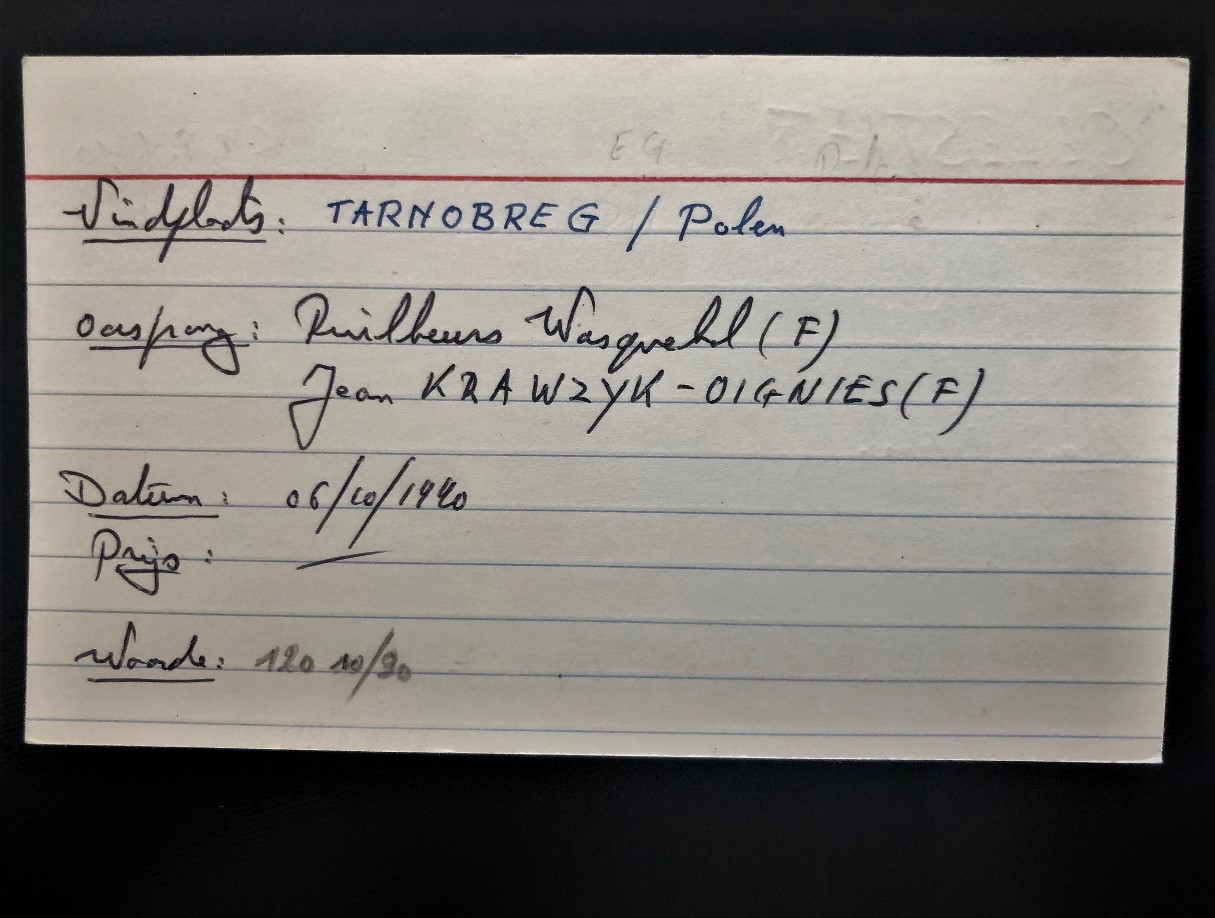 EG
Vindplaats: TARNOBREG / Polen
Oorsprong: Ruilbeurs Wasquehl (F)
Jean KRAWZYK - OIGNIES (F)
Datum: 06/10/1990
Prijs: —
Waarde: 120 10/90